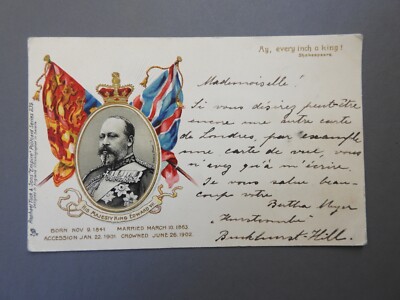 Ay, every inch a king!
SHAKESPEARE
Mademoiselle!
Si vous désirez peut-être
encore une autre carte
de Londres, par example
une carte de vue, vous
n'avez qu'à m'écrire.
Je vous salue beau-
coup votre
Bertha Meyer
Buckhurst-Hill.
HIS MAJESTY KING EDWARD VII
BORN NOV 9. 1841 MARRIED MARCH 10. 1863
ACCESSION JAN 22. 1901 CROWNED JUNE 26. 1902.
Raphael Tuck & Sons' "Empire" Postcard Series